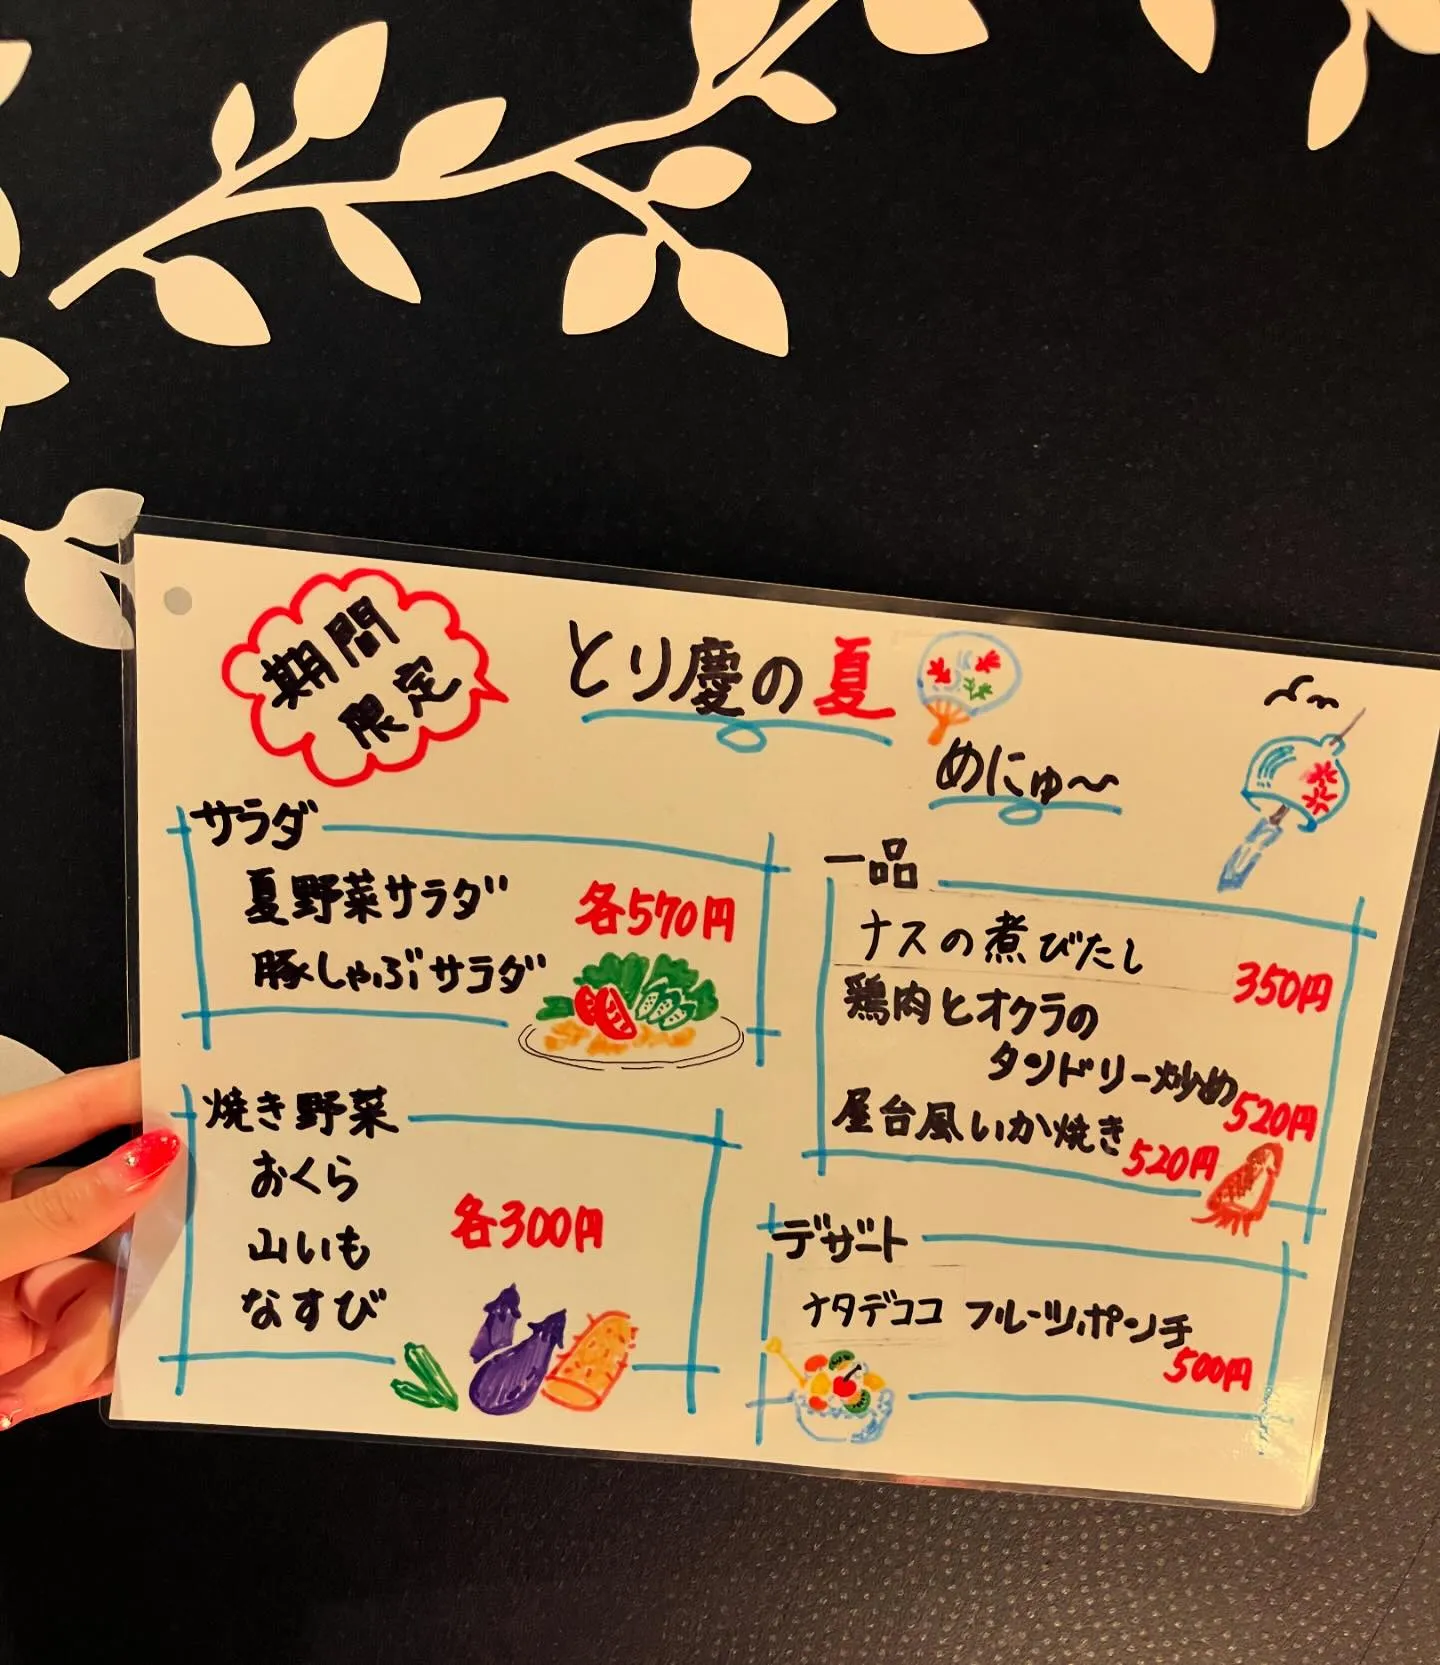 期間
限定
とり慶の夏
めにゅ〜
サラダ
夏野菜サラダ
豚しゃぶサラダ
各570円
焼き野菜
おくら
山いも
なすび
各300円
一品
ナスの煮びたし
350円
鶏肉とオクラの
タンドリー炒め
520円
屋台風いか焼き
520円
デザート
ナタデココ フルーツポンチ
500円